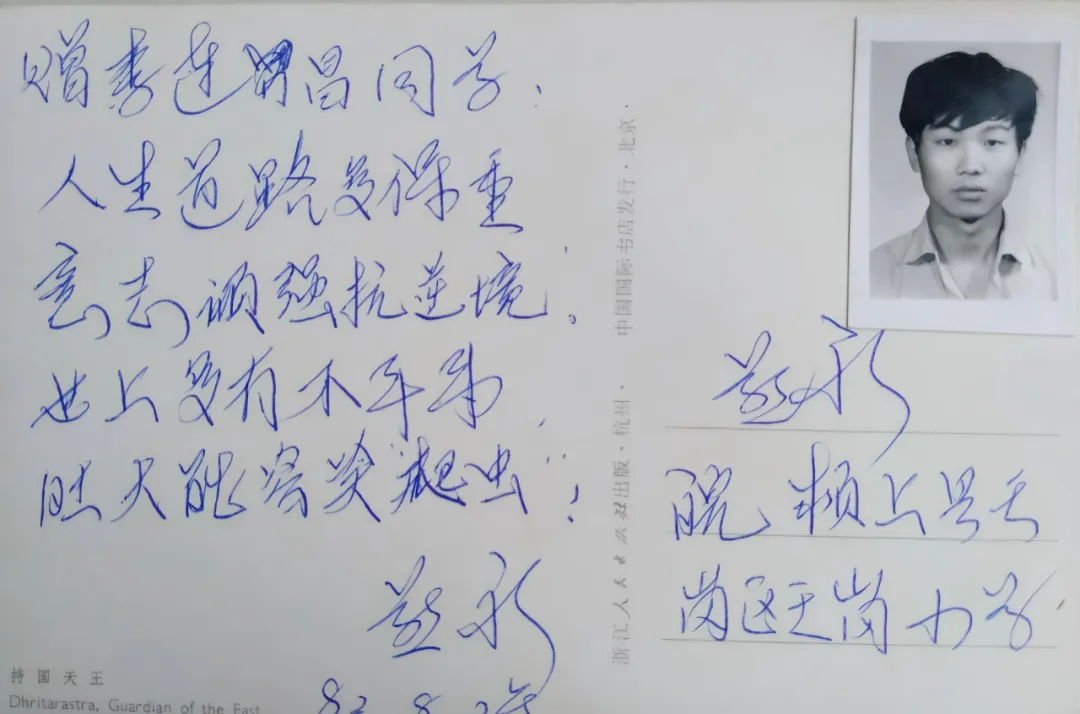 赠李连昌同学：
人生道路多保重
意志顽强抗逆境；
世上多有不平事，
肚大能容笑爬虫！
持国天王
Dhritarastra, Guardian of the East
浙江人民出版社出版·杭州·
中国国际书店发行·北京·
颍上县
岗区王岗小学